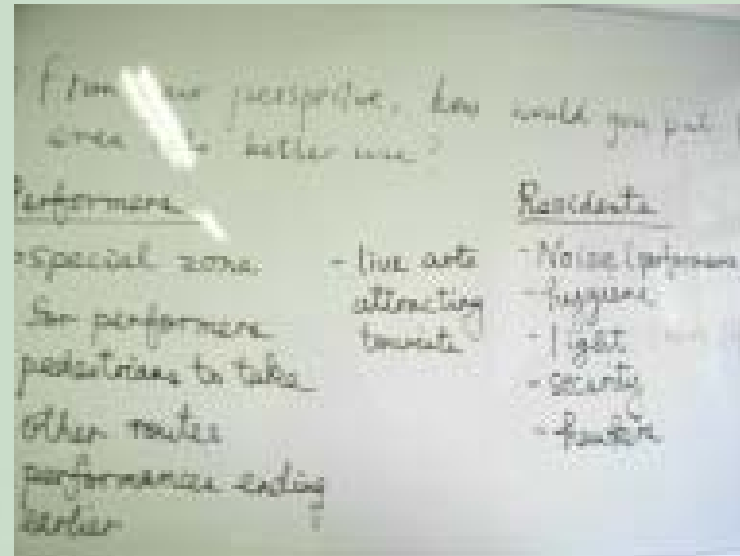 from your perspective, how would you put
area to better use?
Performers
special zone
for performers
pedestrians to take
other routes
performances ending
earlier
- live arts
attracting
tourists
Residents
- Noise (performers
- hygiene
- light
- security